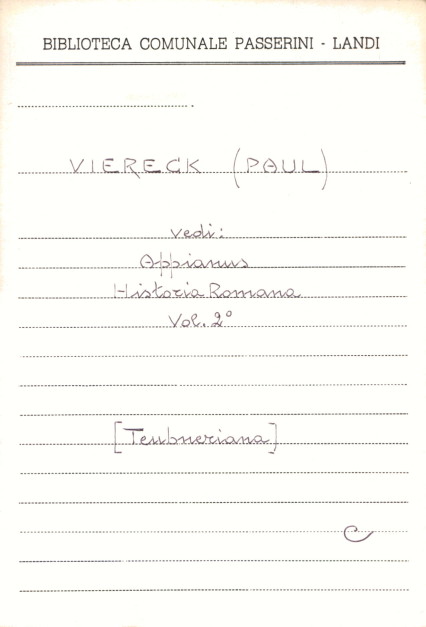 BIBLIOTECA COMUNALE PASSERINI - LANDI
VIERECK (PAUL)
vedi:
Appianus
Historia Romana
Vol. 2º
[Teubneriana]
C